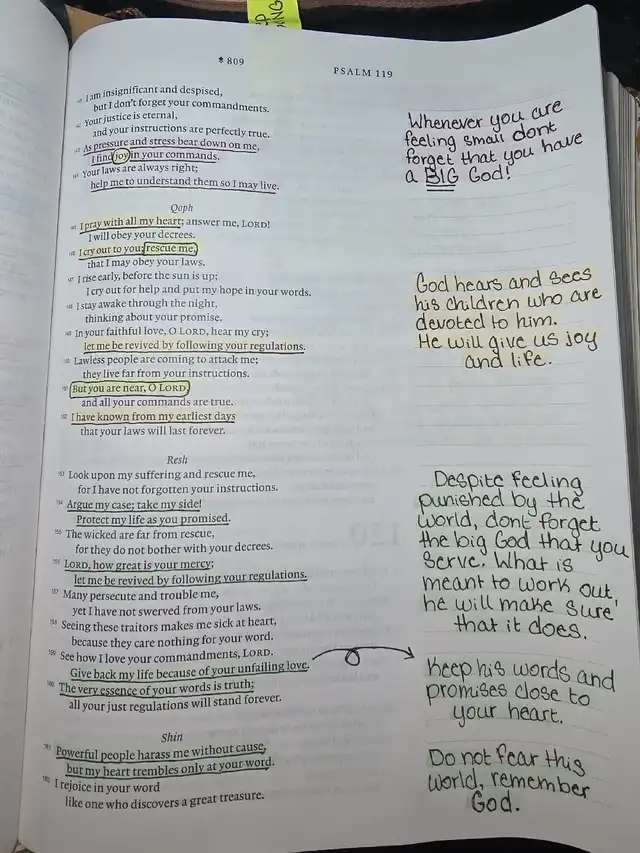 809
PSALM 119
141 I am insignificant and despised,
but I don't forget your commandments.
142 Your justice is eternal,
and your instructions are perfectly true.
143 As pressure and stress bear down on me,
I find joy in your commands.
144 Your laws are always right;
help me to understand them so I may live.
Qoph
145 I pray with all my heart; answer me, LORD!
I will obey your decrees.
146 I cry out to you; rescue me,
that I may obey your laws.
147 I rise early, before the sun is up;
I cry out for help and put my hope in your words.
148 I stay awake through the night,
thinking about your promise.
149 In your faithful love, O LORD, hear my cry;
let me be revived by following your regulations.
150 Lawless people are coming to attack me;
they live far from your instructions.
151 But you are near, O LORD,
and all your commands are true.
152 I have known from my earliest days
that your laws will last forever.
Resh
153 Look upon my suffering and rescue me,
for I have not forgotten your instructions.
154 Argue my case; take my side!
Protect my life as you promised.
155 The wicked are far from rescue,
for they do not bother with your decrees.
156 LORD, how great is your mercy;
let me be revived by following your regulations.
157 Many persecute and trouble me,
yet I have not swerved from your laws.
158 Seeing these traitors makes me sick at heart,
because they care nothing for your word.
159 See how I love your commandments, LORD.
Give back my life because of your unfailing love.
160 The very essence of your words is truth;
all your just regulations will stand forever.
Shin
161 Powerful people harass me without cause,
but my heart trembles only at your word.
162 I rejoice in your word
like one who discovers a great treasure.
Whenever you are
feeling small dont
forget that you have
a BIG God!
God hears and sees
his children who are
devoted to him.
He will give us joy
and life.
Despite feeling
punished by the
world, dont forget
the big God that you
serve. What is
meant to work out,
he will make sure
that it does.
Keep his words and
promises close to
your heart.
Do not fear this
world, remember
God.